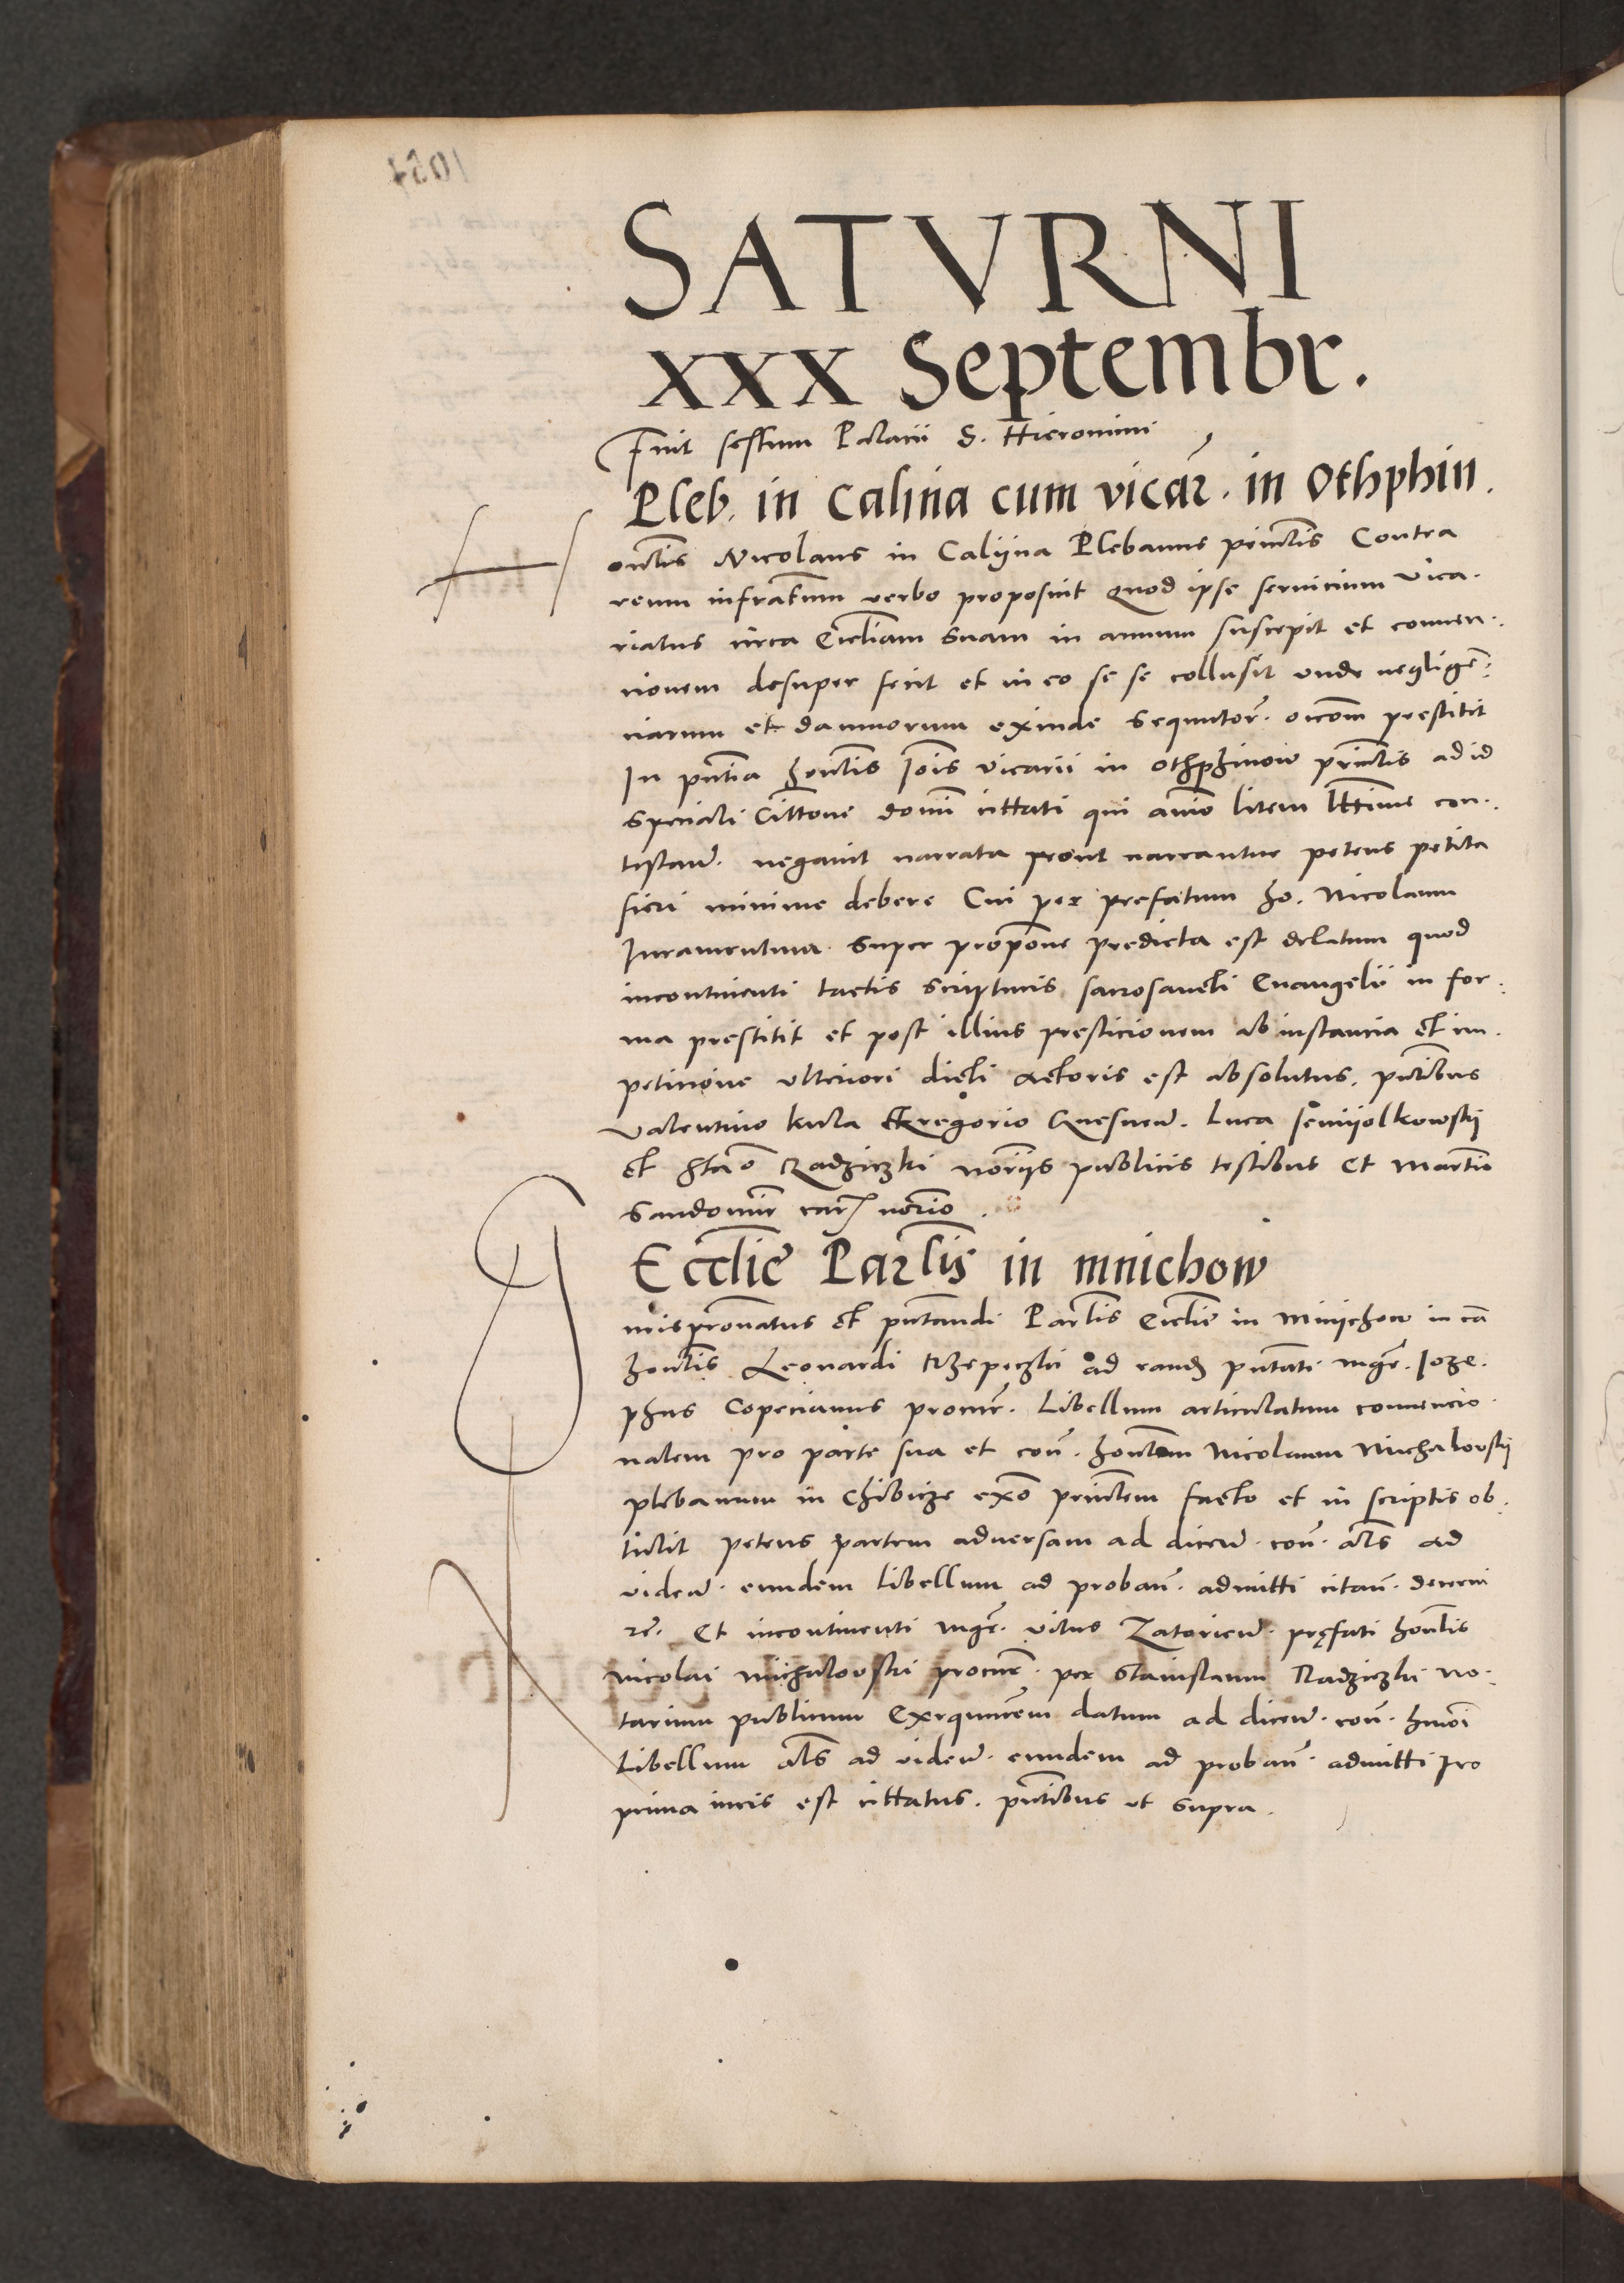 SATVRNI
XXX Septembr.
Fuit festum Palacii S. Hieronimi
Pleb. in Calina cum vicar̃. in Othphin.
H onc̃lis Nicolaus in Caliyna Plebanus prin̄clis Contra
reum infrac̃tum verbo proposuit Quod ipse servicium vica-
riatus circa Eccl̃iam Suam in annum suscepit et conven-
cionem desuper fecit et in eo se se collusit unde negligen̄-
ciarum et damnorum exinde Sequutor̃. oic̃om prestitit
In pn̄tia hon̄lis Iois̃ Vicarii in Othphinow prin̄clis ad id
Speciali Citt̃one domi cittati qui animo litem ltt̃ime con-
testan̄. negavit narrata prout narrantur petens petita
fieri minime debere Cui per prefatum ho. Nicolaum
Iuramentum super prop̃one predicta est delatum quod
incontinenti tactis Scripturis sacrosancti Evangelii in for-
ma prestitit et post illius presticionem ab instancia et im-
peticione ulteriori dicti actoris est absolutus. pn̄tibus
Valentino Kula Gregorio Gnesnen̄. Luca Semiyolkowskij
et Stan̄o Radziczki noriis̃ publicis testibus Et Martin̄o
Sandomir̃ car̃ nor̃io.
Eccl̃ie Parl̃is in mnichow
nisprovatus et pn̄tandi Parl̃is Eccl̃ie in Mniychow in cā
hon̄lis Leonardi Rzepeczki ad eand̃ pn̄tati mgr̃. Ioze-
phus Copecianus procur̃. Libellum articulatum convencio-
nalem pro parte sua et con̄. hon̄lem Nicolaum Michalovskij
plebanum in Chibicze exō prin̄clem facto et in scriptis ob-
tulit petens partem adversam ad dicen̄. con̄. al̃s ad
viden̄. eundem libellum ad proban̄. admitti citan̄. decerni
re. Et incontinenti mgr̃. Vitus Zatorien̄. pręfati hon̄lis
Nicolai Michalovski procur̃. per Stanislaum Radziczki no-
tarium publicum Exequutorem datum ad dicen̄. con̄. hmōi
Libellum al̃s ad viden̄. eundem ad proban̄. admitti pro
prima iuris est cittatus. pn̄tibus ut supra.